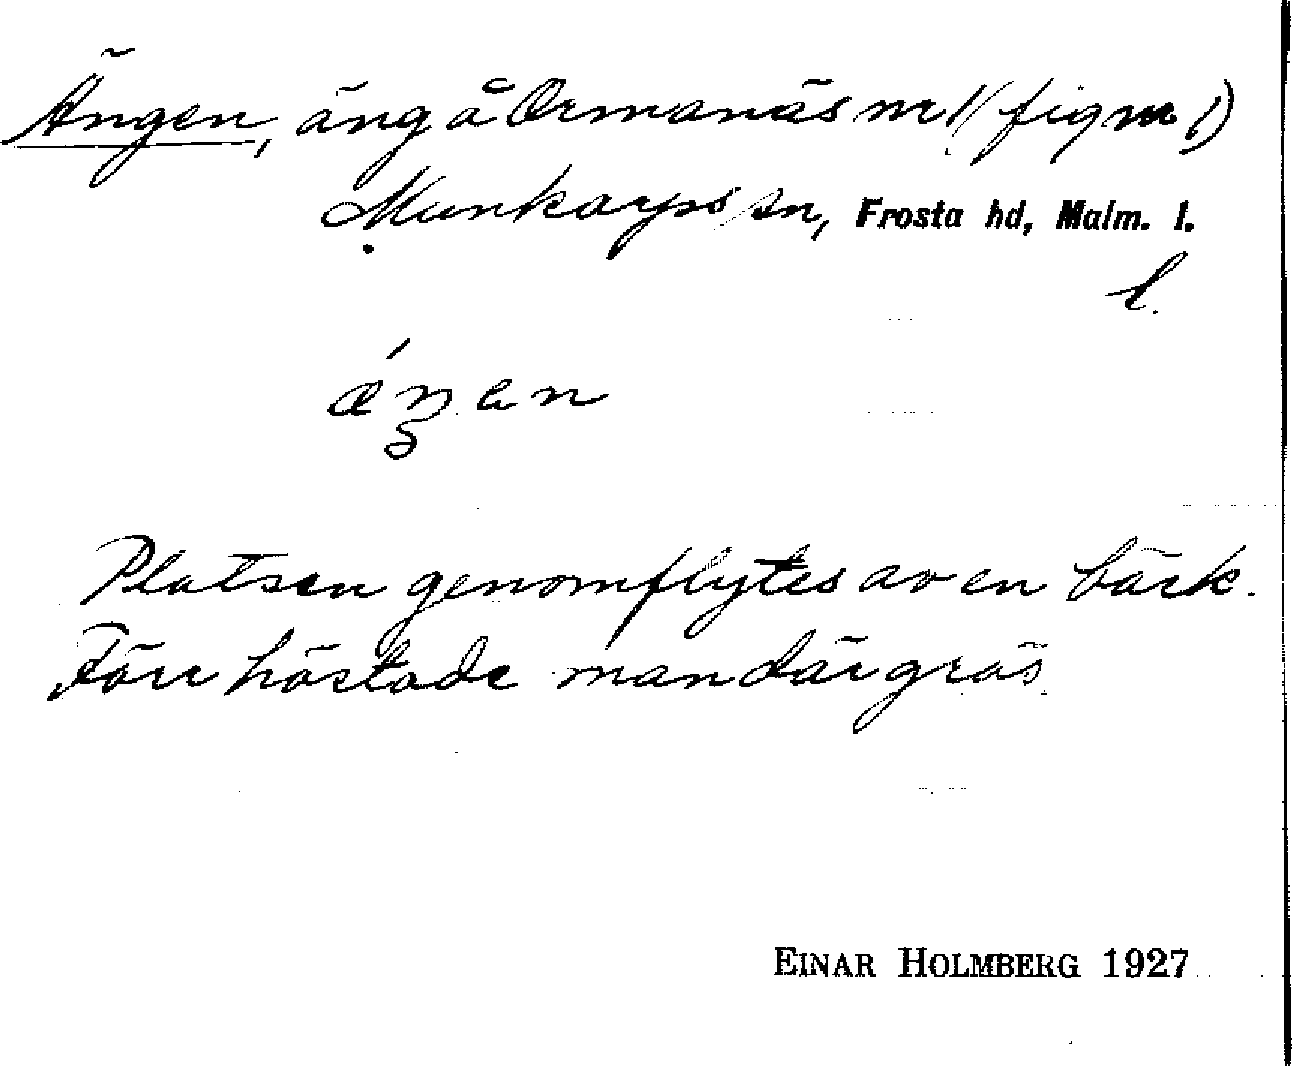 Ängen, äng å Ormanäs nr 1 (fig nr 1)
Munkarps sn, Frosta hd, Malm. l.
l.
Platsen genomflytes av en bäck.
Förr höstade man där gräs.
EINAR HOLMBERG 1927